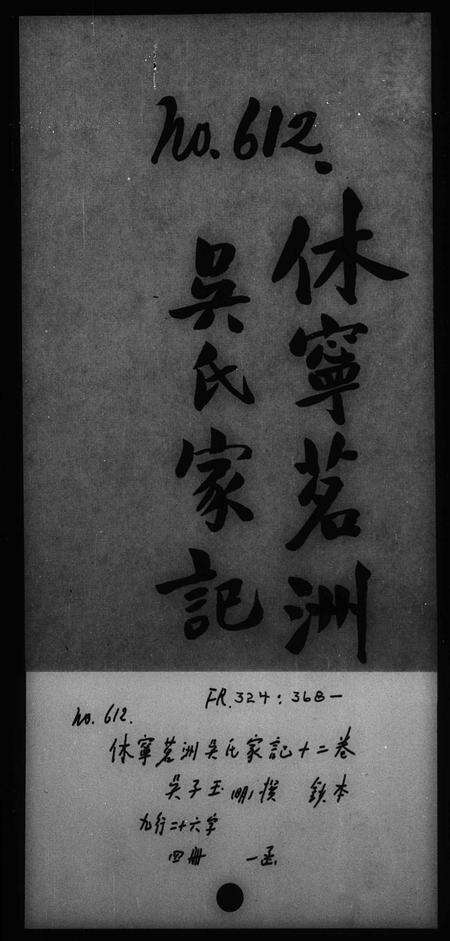 No.612.
休寧茗洲
吳氏家記
FR.324:368—
No.612.
休寧茗洲吳氏家記十二卷
吳子玉明撰 鈔本
九行二十六字
四冊 一函